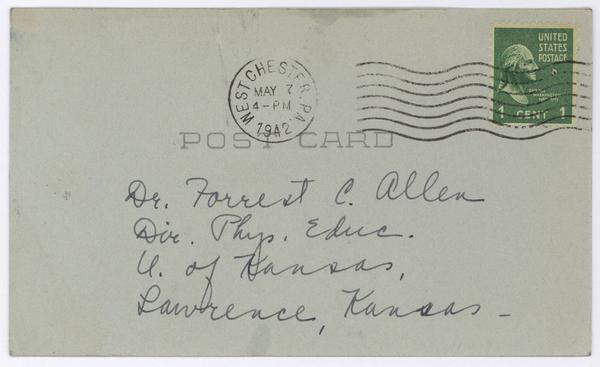 UNITED
STATES
POSTAGE
1 CENT 1
WEST CHESTER, PA.
MAY 7
4-PM
1942
POST CARD
Dr. Forrest C. Allen
Dir. Phys. Educ.
U. of Kansas,
Lawrence, Kansas -